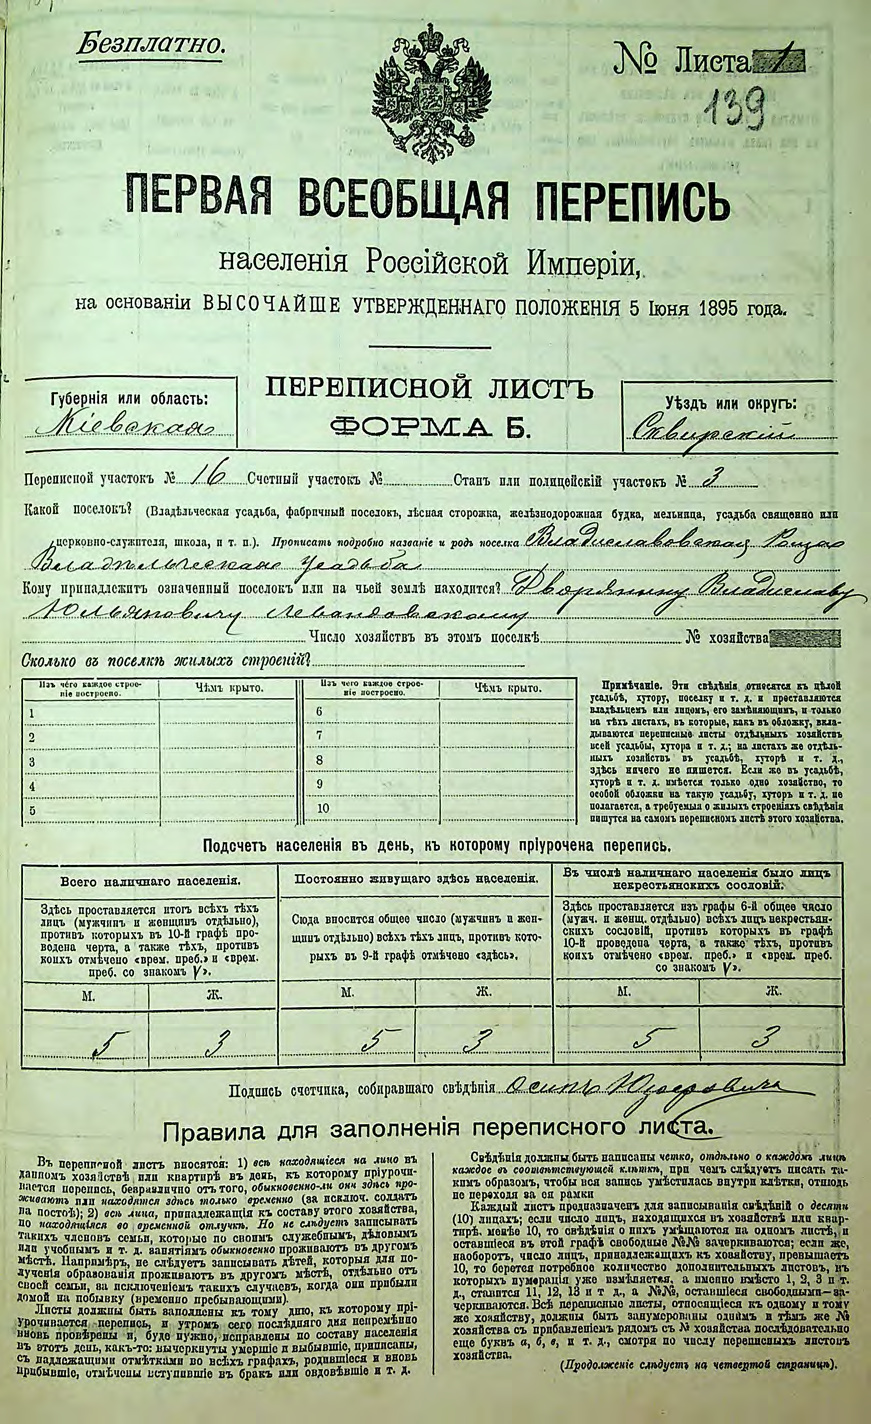 Безплатно.
№ Листа 1
139
ПЕРВАЯ ВСЕОБЩАЯ ПЕРЕПИСЬ
населенія Россійской Имперіи,
на основаніи ВЫСОЧАЙШЕ УТВЕРЖДЕННАГО ПОЛОЖЕНІЯ 5 Іюня 1895 года.
Губернія или область:
Кіевская
ПЕРЕПИСНОЙ ЛИСТЪ
ФОРМА Б.
Уѣздъ или округъ:
Сквирскій
Переписной участокъ № 16 Счетный участокъ № Станъ или полицейскій участокъ № 3
Какой поселокъ? (Владѣльческая усадьба, фабричный поселокъ, лѣсная сторожка, желѣзнодорожная будка, мельница, усадьба священно или
церковно-служителя, школа, и т. п.). Прописать подробно названіе и родъ поселка Владиславовская Роща
Владѣльческая усадьба
Кому принадлежитъ означенный поселокъ или на чьей землѣ находится? Дворянину Владиславу
Юльяновичу Левандовскому
Число хозяйствъ въ этомъ поселкѣ № хозяйства
Сколько въ поселкѣ жилыхъ строеній?
Изъ чего каждое строеніе построено.
Чѣмъ крыто.
Изъ чего каждое строеніе построено.
Чѣмъ крыто.
1 6
2 7
3 8
4 9
5 10
Примѣчаніе. Эти свѣдѣнія относятся къ цѣлой
усадьбѣ, хутору, поселку и т. д. и проставляются
владѣльцемъ или лицомъ, его замѣняющимъ, и только
на тѣхъ листахъ, въ которые, какъ въ обложку, вкла-
дываются переписные листы отдѣльныхъ хозяйствъ
всей усадьбы, хутора и т. д.; на листахъ же отдѣль-
ныхъ хозяйствъ въ усадьбѣ, хуторѣ и т. д.,
здѣсь ничего не пишется. Если же въ усадьбѣ,
хуторѣ и т. д. имѣется только одно хозяйство, то
особой обложки на такую усадьбу, хуторъ и т. д. не
полагается, а требуемыя о жилыхъ строеніяхъ свѣдѣнія
пишутся на самомъ переписномъ листѣ этого хозяйства.
Подсчетъ населенія въ день, къ которому пріурочена перепись.
Всего наличнаго населенія.
Здѣсь проставляется итогъ всѣхъ тѣхъ
лицъ (мужчинъ и женщинъ отдѣльно),
противъ которыхъ въ 10-й графѣ про-
ведена черта, а также тѣхъ, противъ
коихъ отмѣчено «врем. преб.» и «врем.
преб. со знакомъ V».
Постоянно живущаго здѣсь населенія.
Сюда вносится общее число (мужчинъ и жен-
щинъ отдѣльно) всѣхъ тѣхъ лицъ, противъ кото-
рыхъ въ 9-й графѣ отмѣчено «здѣсь».
Въ числѣ наличнаго населенія было лицъ
некрестьянскихъ сословій:
Здѣсь проставляется изъ графы 6-й общее число
(мужч. и женщ. отдѣльно) всѣхъ лицъ некрестьян-
скихъ сословій, противъ которыхъ въ графѣ
10-й проведена черта, а также тѣхъ, противъ
коихъ отмѣчено «врем. преб.» и «врем. преб.
со знакомъ V».
М. Ж. М. Ж. М. Ж.
5 3 5 3 5 3
Подпись счетчика, собиравшаго свѣдѣнія Осипъ
Правила для заполненія переписного листа.
Въ переписной листъ вносятся: 1) всѣ находящіеся на лицо въ
данномъ хозяйствѣ или квартирѣ въ день, къ которому пріурочи-
вается перепись, безразлично отъ того, обыкновенно-ли они здѣсь про-
живаютъ или находятся здѣсь только временно (за исключ. солдатъ
на постоѣ); 2) всѣ лица, принадлежащія къ составу этого хозяйства,
но находящіяся во временной отлучкѣ. Но не слѣдуетъ записывать
такихъ членовъ семьи, которые по своимъ служебнымъ, дѣловымъ
или учебнымъ и т. д. занятіямъ обыкновенно проживаютъ въ другомъ
мѣстѣ. Напримѣръ, не слѣдуетъ записывать дѣтей, которыя для по-
лученія образованія проживаютъ въ другомъ мѣстѣ, отдѣльно отъ
своей семьи, за исключеніемъ такихъ случаевъ, когда они прибыли
домой на побывку (временно пребывающими).
Листы должны быть заполнены къ тому дню, къ которому прі-
урочивается перепись, и утромъ сего послѣдняго дня непремѣнно
вновь провѣрены и, буде нужно, исправлены по составу населенія
въ этотъ день, какъ-то: вычеркнуты умершіе и выбывшіе, приписаны,
съ надлежащими отмѣтками во всѣхъ графахъ, родившіеся и вновь
прибывшіе, отмѣчены вступившіе въ бракъ или овдовѣвшіе и т. д.
Свѣдѣнія должны быть написаны четко, отдѣльно о каждомъ лицѣ
каждое въ соотвѣтствующей клѣткѣ, при чемъ слѣдуетъ писать та-
кимъ образомъ, чтобы вся запись умѣстилась внутри клѣтки, отнюдь
не переходя за ея рамки
Каждый листъ предназначенъ для записыванія свѣдѣній о десяти
(10) лицахъ; если число лицъ, находящихся въ хозяйствѣ или квар-
тирѣ, менѣе 10, то свѣдѣнія о нихъ умѣщаются на одномъ листѣ, и
оставшіеся въ этой графѣ свободные №№ зачеркиваются; если же,
наоборотъ, число лицъ, принадлежащихъ къ хозяйству, превышаетъ
10, то берется потребное количество дополнительныхъ листовъ, въ
которыхъ нумерація уже измѣняется, а именно вмѣсто 1, 2, 3 и т.
д., ставится 11, 12, 13 и т д., а №№, оставшіеся свободными—за-
черкиваются. Всѣ переписные листы, относящіеся къ одному и тому
же хозяйству, должны быть занумерованы однимъ и тѣмъ же №
хозяйства съ прибавленіемъ рядомъ съ № хозяйства послѣдовательно
еще буквъ а, б, в, и т. д., смотря по числу переписныхъ листовъ
хозяйства.
(Продолженіе слѣдуетъ на четвертой страницѣ).